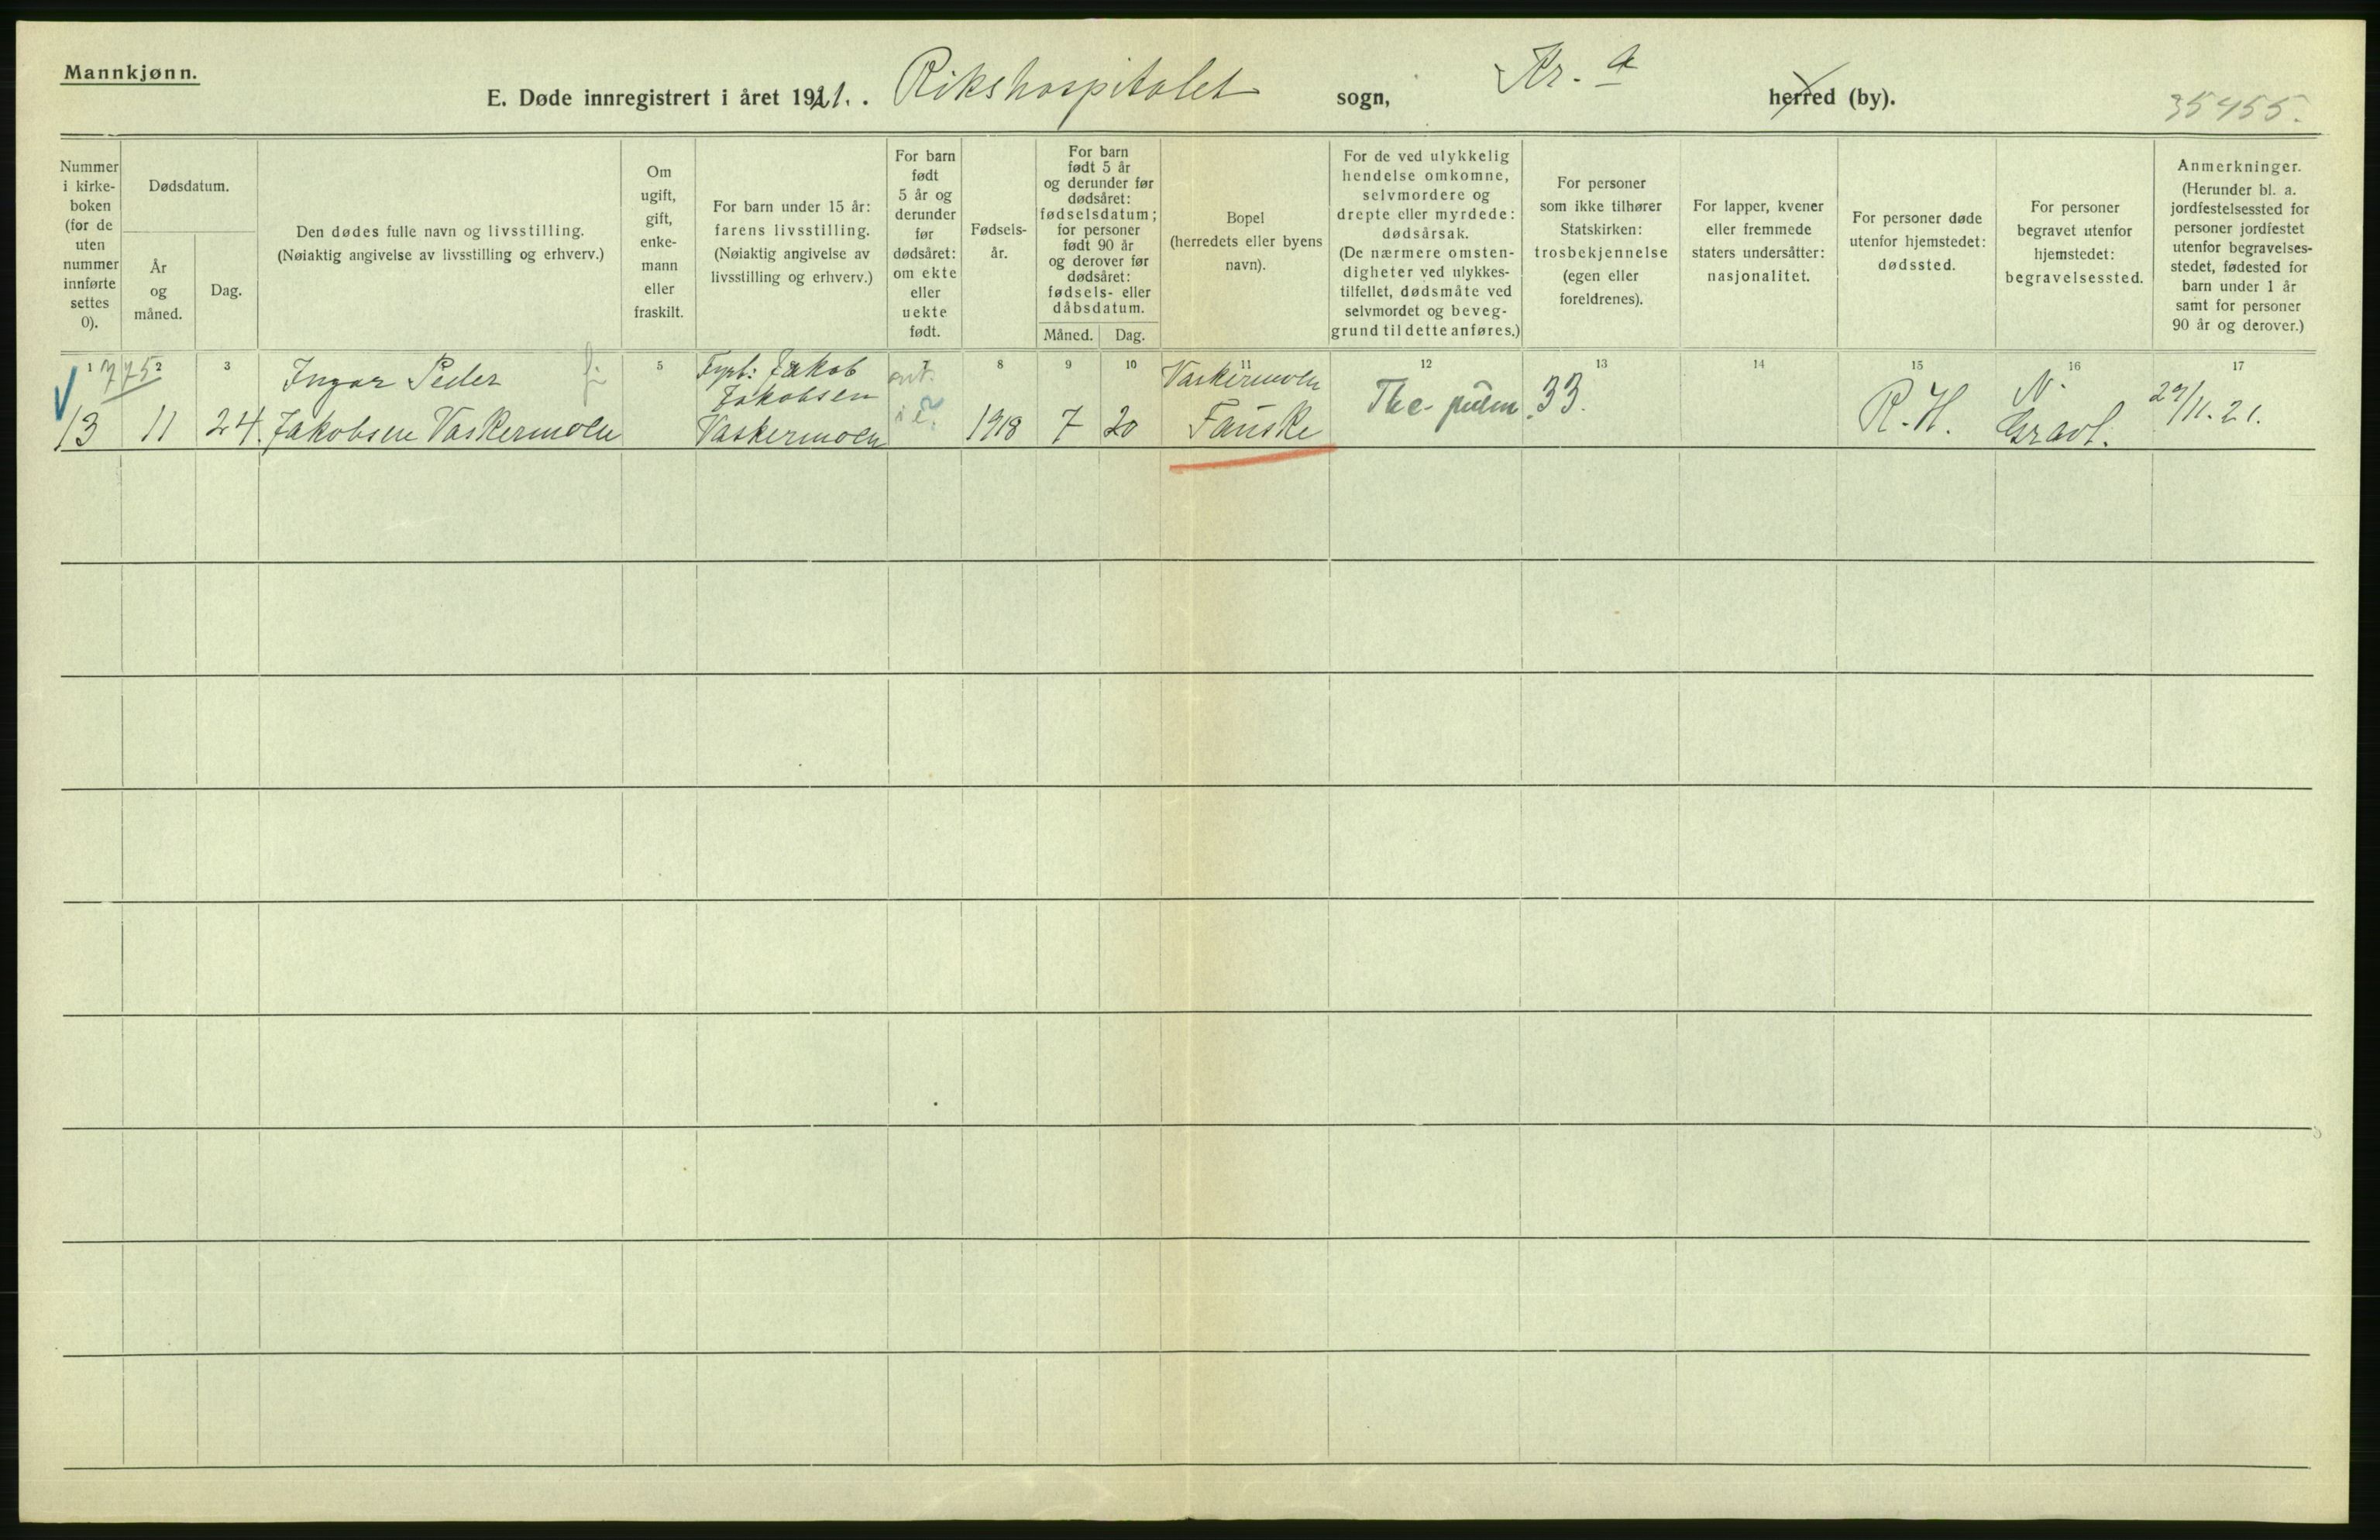 Mannkjønn.
E. Døde innregistrert i året 1921. Rikshospitalet sogn, Kr. a herred (by).
35455.
Nummer i kirke-boken (for de uten nummer innførte settes 0).
Dødsdatum.
År og måned.
Dag.
Den dødes fulle navn og livsstilling.
(Nøiaktig angivelse av livsstilling og erhverv.)
Om ugift, gift, enke-mann eller fraskilt.
For barn under 15 år: farens livsstilling.
(Nøiaktig angivelse av livsstilling og erhverv.)
For barn født 5 år og derunder før dødsåret: om ekte eller uekte født.
Fødsels-år.
For barn født 5 år og derunder før dødsåret: fødselsdatum; for personer født 90 år og derover før dødsåret: fødsels- eller dåbsdatum.
Måned.
Dag.
Bopel
(herredets eller byens navn).
For de ved ulykkelig hendelse omkomne, selvmordere og drepte eller myrdede: dødsårsak.
(De nærmere omsten-digheter ved ulykkes-tilfellet, dødsmåte ved selvmordet og beveg-grund til dette anføres.)
For personer som ikke tilhører Statskirken: trosbekjennelse
(egen eller foreldrenes).
For lapper, kvener eller fremmede staters undersåtter: nasjonalitet.
For personer døde utenfor hjemstedet: dødssted.
For personer begravet utenfor hjemstedet: begravelsessted.
Anmerkninger.
(Herunder bl. a. jordfestelsessted for personer jordfestet utenfor begravelses-stedet, fødested for barn under 1 år samt for personer 90 år og derover.)
1 2 3 5 7 8 9 10 11 12 13 14 15 16 17
775
13 11 24.
Ingar Peder
Jakobsen Vaskermoen
Fyrb: Jakob
Jakobsen
Vaskermoen
1918 7 20
Vaskermoen
Fauske
Tbc. pulm. 33.
R.H.
N.
Gravl.
29/11.21.